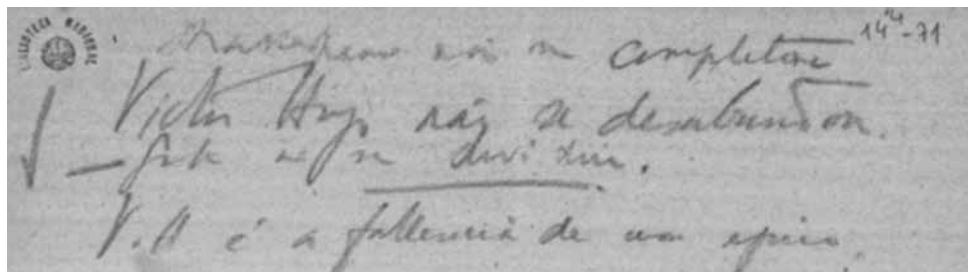 BIBLIOTECA NACIONAL
14⁴-71
Shakespeare não se completou
Victor Hugo não se desabundou.
não se
V. H é a fallencia de um epico.